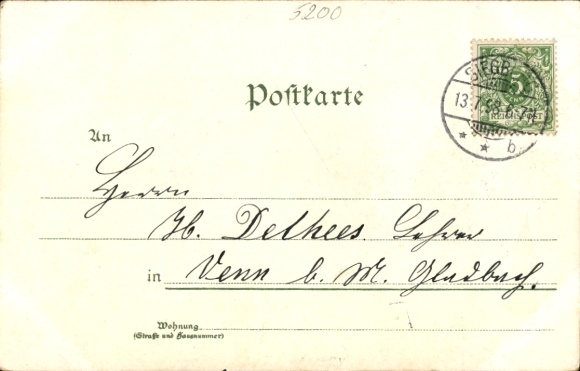 5200
SIEGB
13.7.98
b
5
REICHSPOST
Postkarte
An
Herrn
H. Dethees. Lehrer
in Venn b. M. Gladbach.
Wohnung
(Straße und Hausnummer)